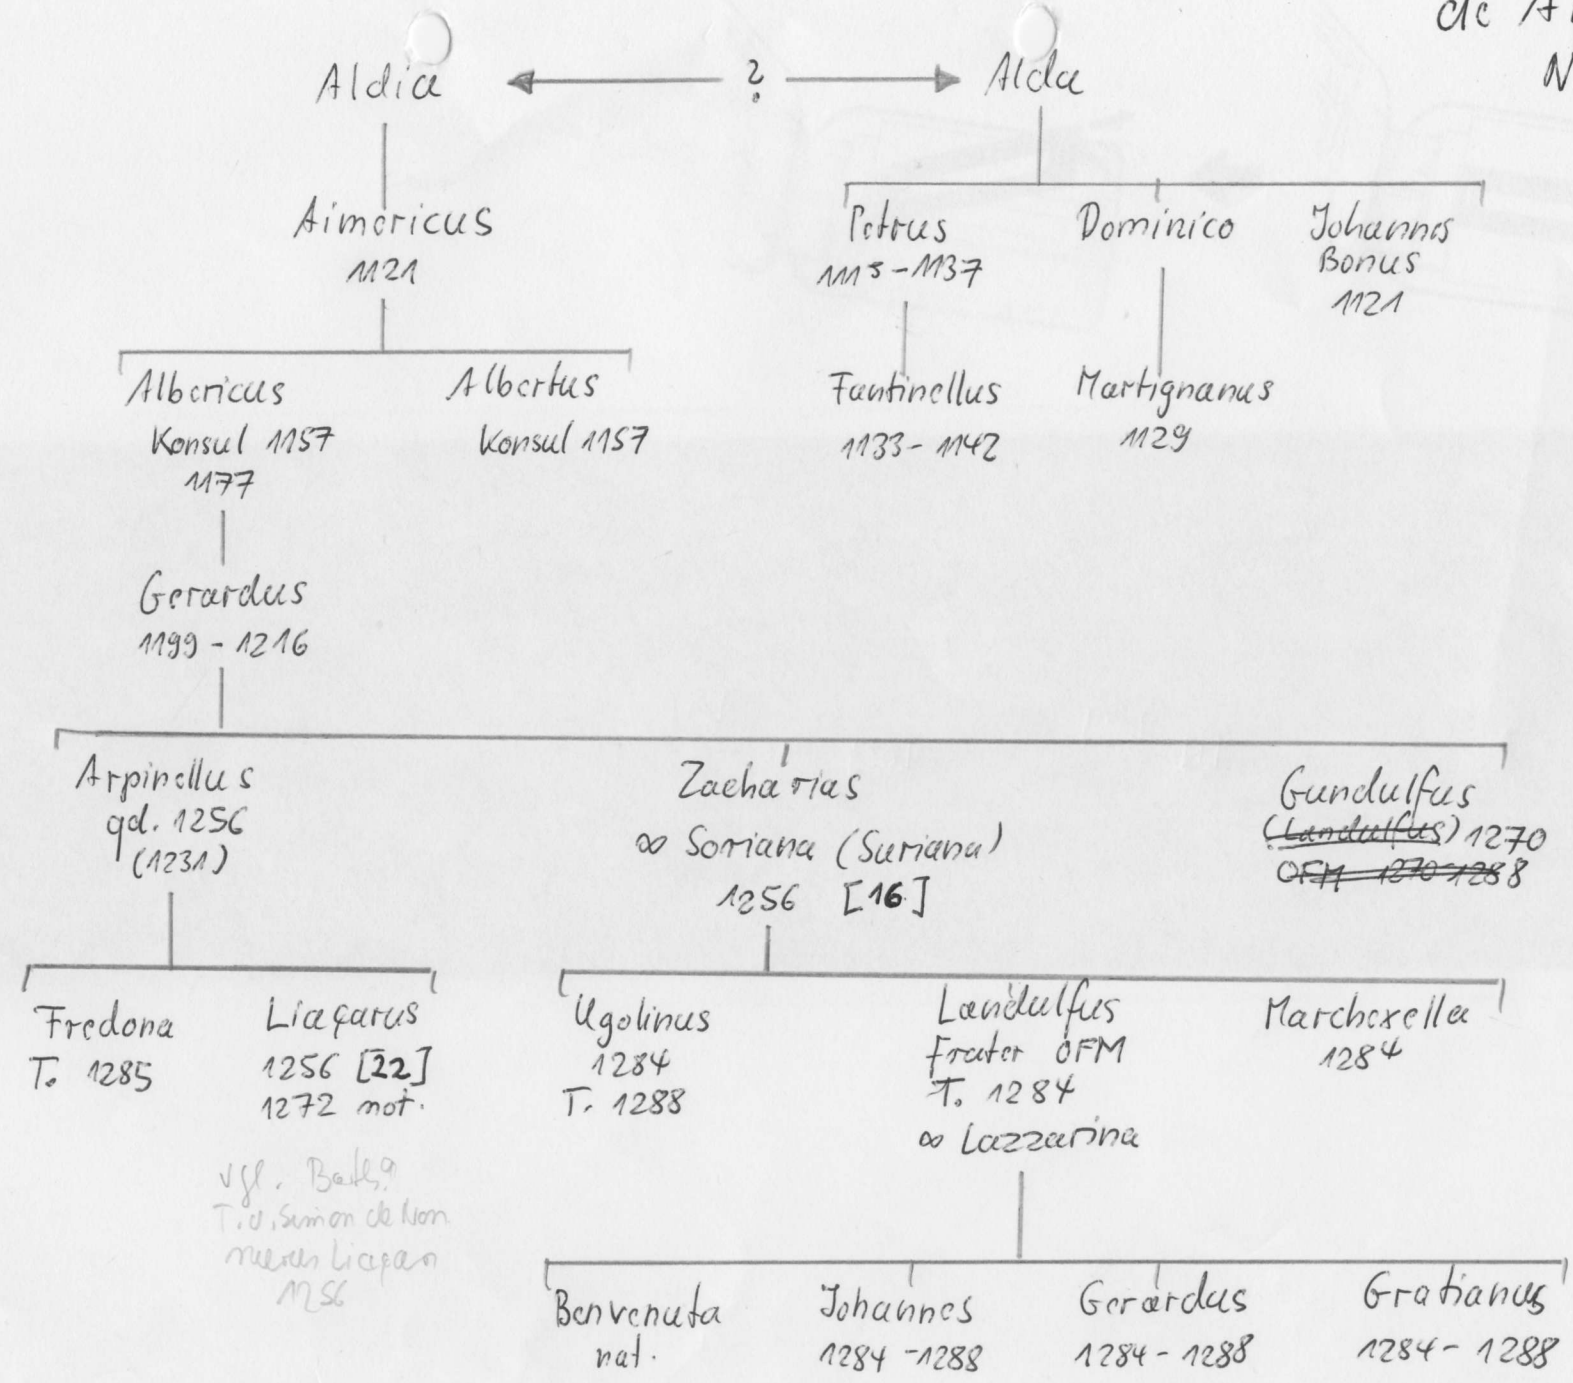 de A
N
Aldia ? Alda
Aimericus
1121
Petrus
1115-1137
Dominico
Johannes
Bonus
1121
Albericus
Konsul 1157
1177
Albertus
Konsul 1157
Fantinellus
1133-1142
Martignanus
1129
Gerardus
1199-1216
Arpinellus
qd. 1256
(1231)
Zacharias
∞ Soriana (Suriana)
1256 [16]
Gundulfus
(Landulfus) 1270
OFM 1270-1288
Fredona
T. 1285
Liaçarus
1256 [22]
1272 not.
Ugolinus
1284
T. 1288
Landulfus
frater OFM
T. 1284
∞ Lazzarina
Marchexella
1284
vgl.
T.v. Simon de Non
Liaçari
1256
Benvenuta
nat.
Johannes
1284-1288
Gerardus
1284-1288
Gratianus
1284-1288